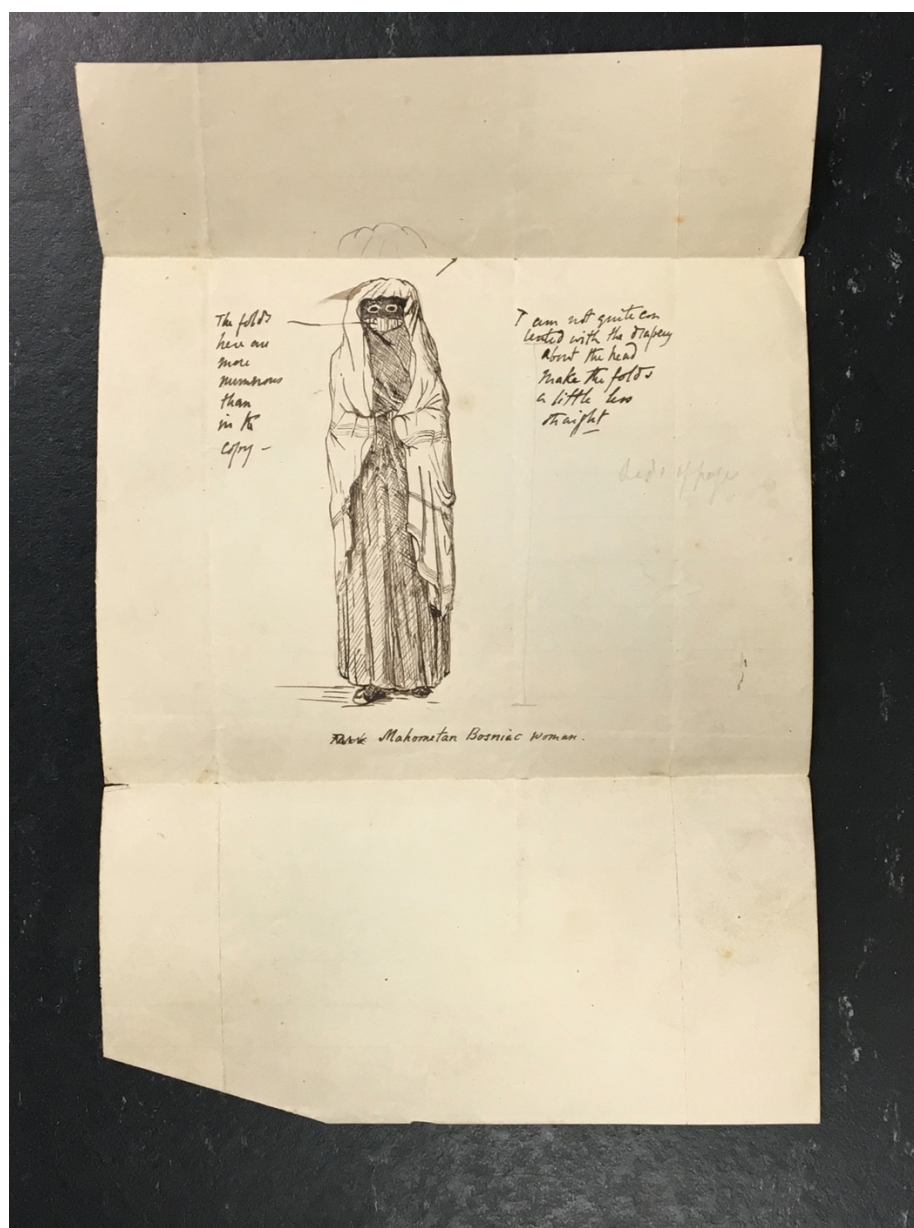 The folds
here are
more
numerous
than
in the
copy –
I am not quite con
tented with the drapery
about the head
make the folds
a little less
straight
Mahometan Bosniac woman.